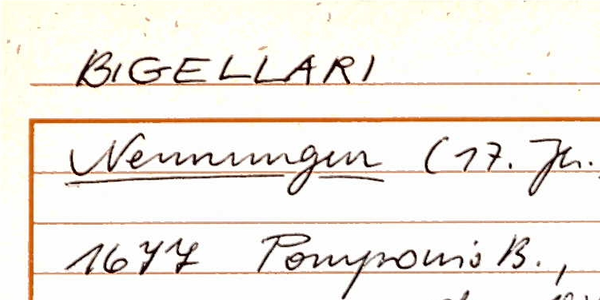 BIGELLARI
Nennungen (17. Jh.
1677 Pomponio B.,